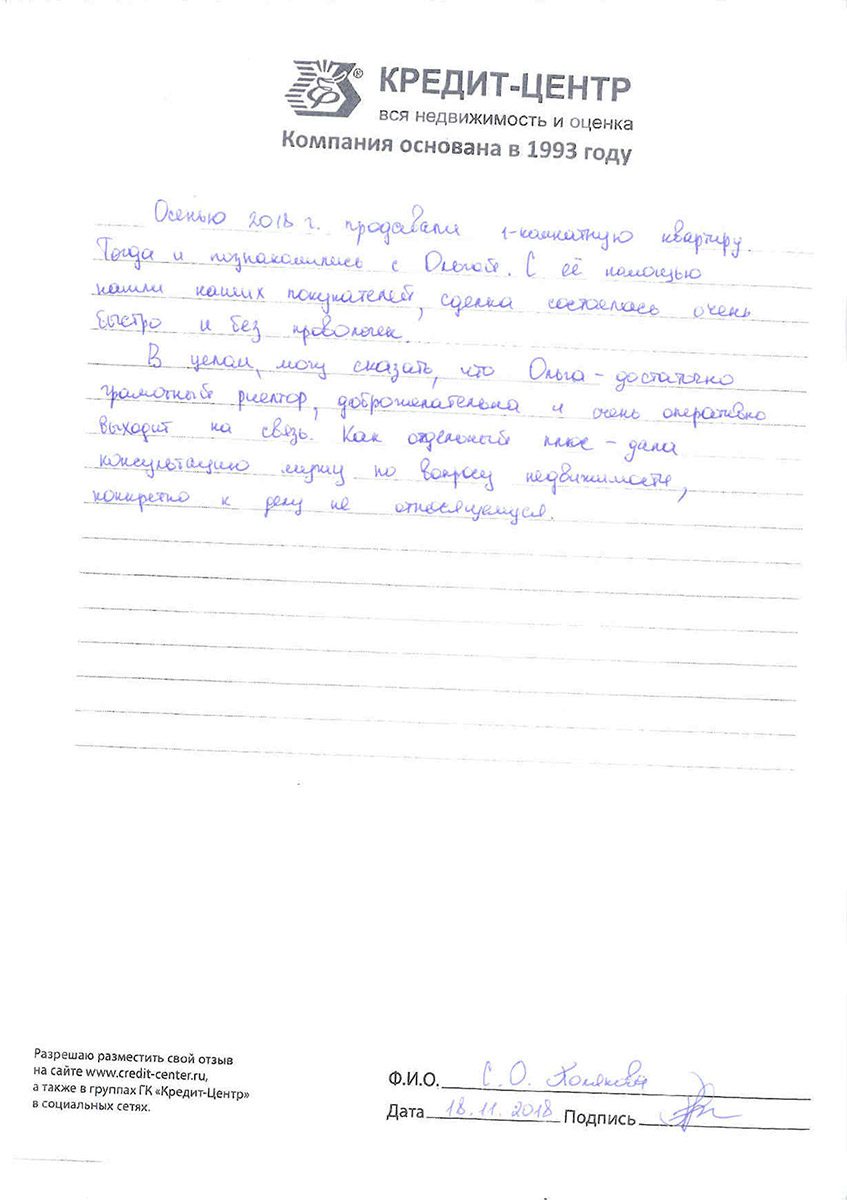 КРЕДИТ-ЦЕНТР
вся недвижимость и оценка
Компания основана в 1993 году
Осенью 2018 г. продавали 1-комнатную квартиру.
Тогда и познакомились с Ольгой. С её помощью
нашли наших покупателей, сделка состоялась очень
быстро и без проволочек.
В целом, могу сказать, что Ольга – достаточно
грамотный риелтор, доброжелательна и очень оперативно
выходит на связь. Как отдельный плюс – дала
консультацию мужу по вопросу недвижимости,
конкретно к делу не относящемуся.
Разрешаю разместить свой отзыв
на сайте www.credit-center.ru,
а также в группах ГК «Кредит-Центр»
в социальных сетях.
Ф.И.О. С. О.
Дата 18.11.2018 Подпись